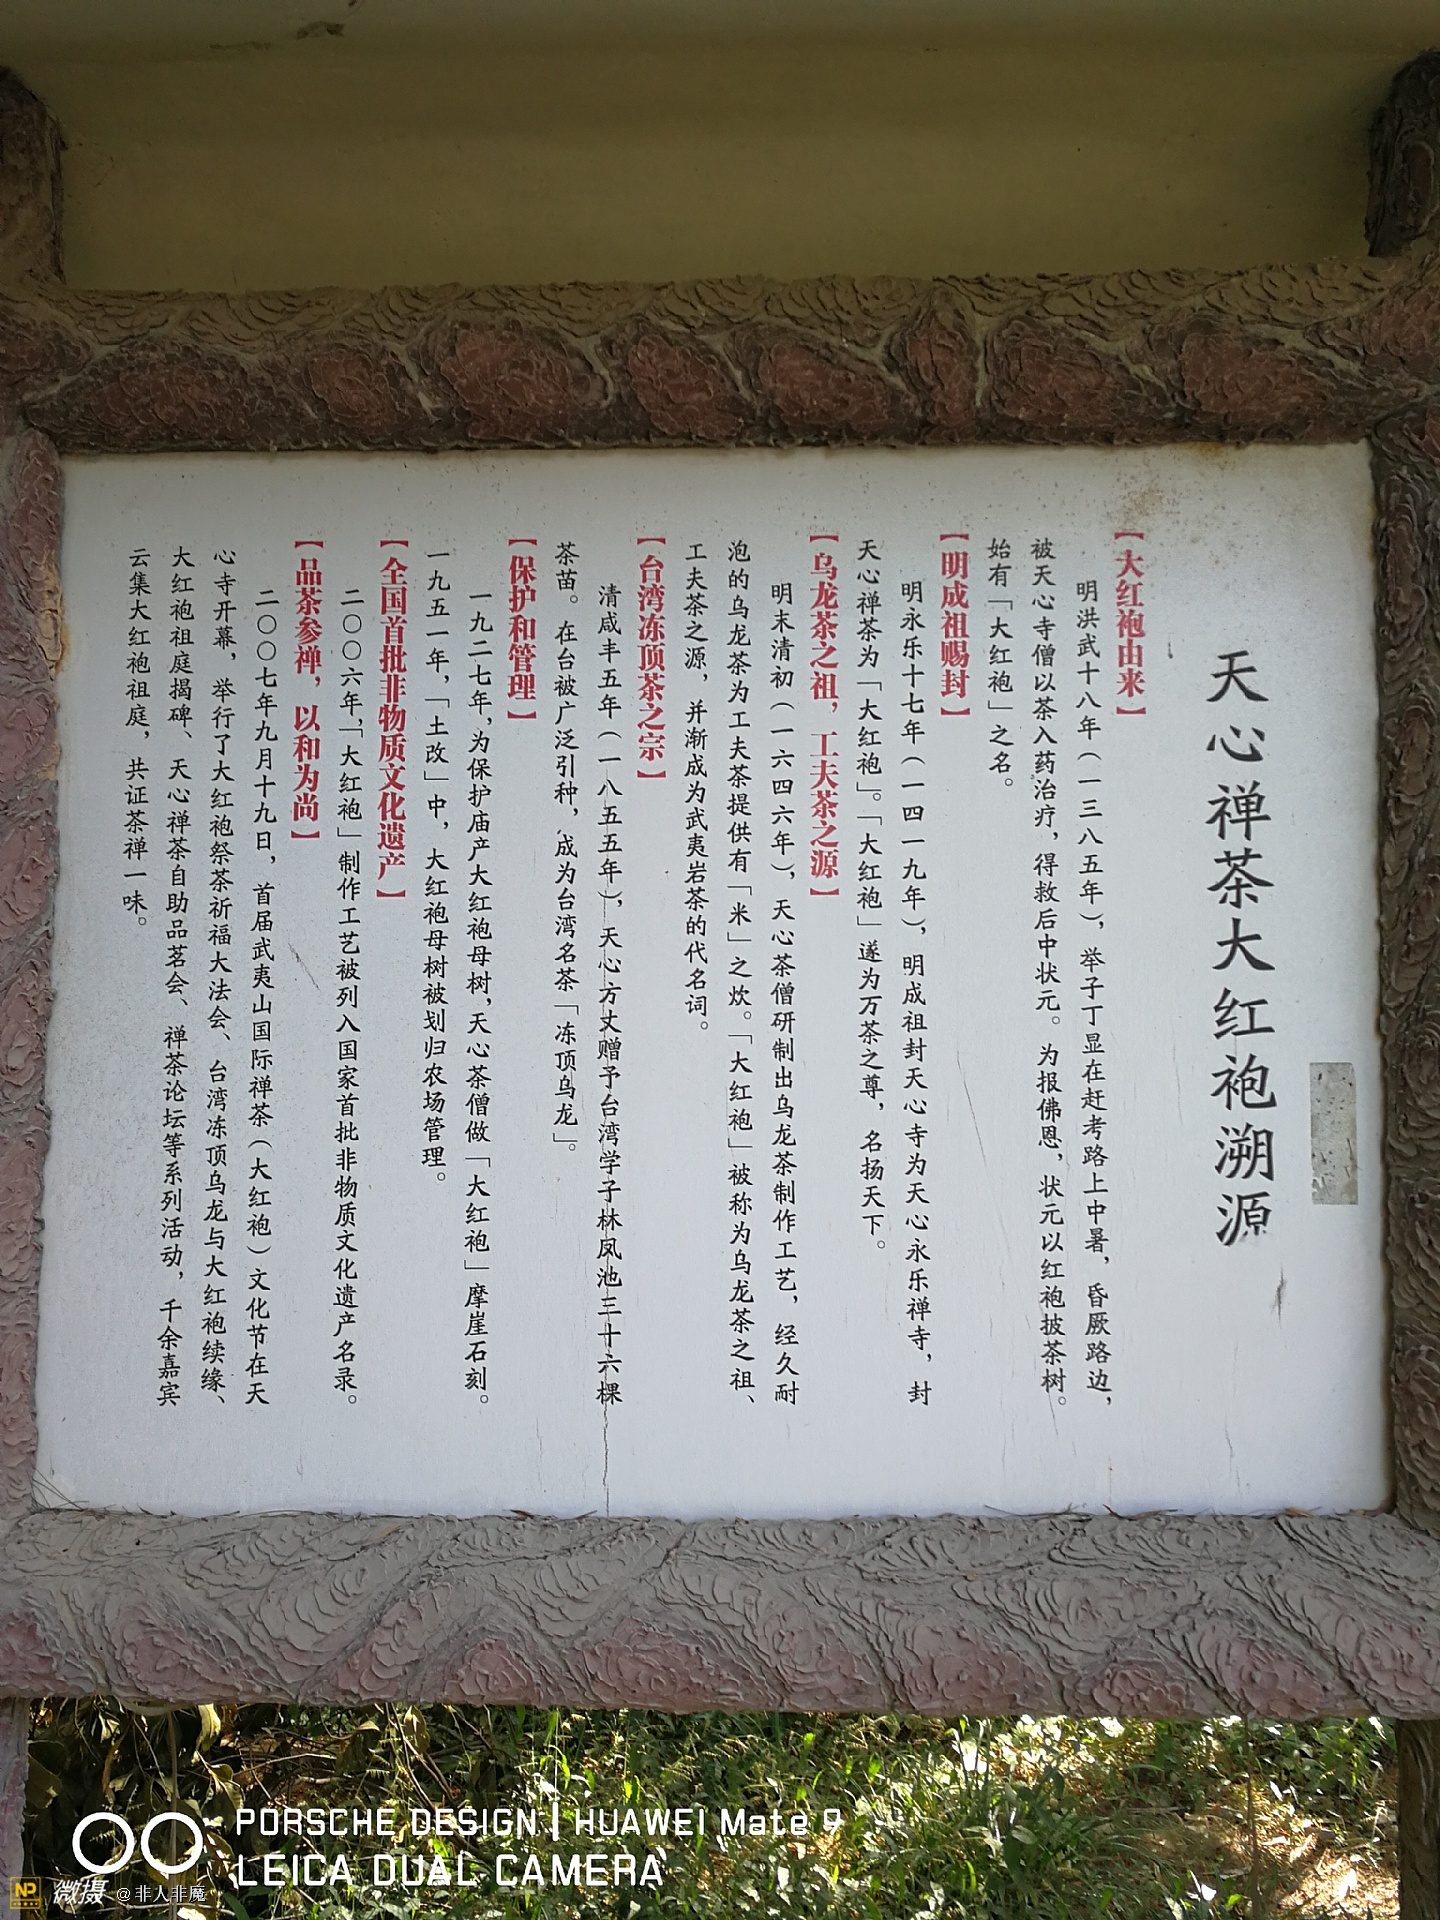 天心禅茶大红袍溯源
【大红袍由来】
明洪武十八年（一三八五年），举子丁显在赶考路上中暑，昏厥路边，
被天心寺僧以茶入药治疗，得救后中状元。为报佛恩，状元以红袍披茶树。
始有「大红袍」之名。
【明成祖赐封】
明永乐十七年（一四一九年），明成祖封天心寺为天心永乐禅寺，封
天心禅茶为「大红袍」。「大红袍」遂为万茶之尊，名扬天下。
【乌龙茶之祖，工夫茶之源】
明末清初（一六四六年），天心茶僧研制出乌龙茶制作工艺，经久耐
泡的乌龙茶为工夫茶提供有「米」之炊。「大红袍」被称为乌龙茶之祖、
工夫茶之源，并渐成为武夷岩茶的代名词。
【台湾冻顶茶之宗】
清咸丰五年（一八五五年），天心方丈赠予台湾学子林凤池三十六棵
茶苗。在台被广泛引种，成为台湾名茶「冻顶乌龙」。
【保护和管理】
一九二七年，为保护庙产大红袍母树，天心茶僧做「大红袍」摩崖石刻。
一九五一年，「土改」中，大红袍母树被划归农场管理。
【全国首批非物质文化遗产】
二〇〇六年，「大红袍」制作工艺被列入国家首批非物质文化遗产名录。
【品茶参禅，以和为尚】
二〇〇七年九月十九日，首届武夷山国际禅茶（大红袍）文化节在天
心寺开幕，举行了大红袍祭茶祈福大法会、台湾冻顶乌龙与大红袍续缘、
大红袍祖庭揭碑、天心禅茶自助品茗会、禅茶论坛等系列活动，千余嘉宾
云集大红袍祖庭，共证茶禅一味。
PORSCHE DESIGN | HUAWEI Mate 9
LEICA DUAL CAMERA
NP 微摄 @非人非魔